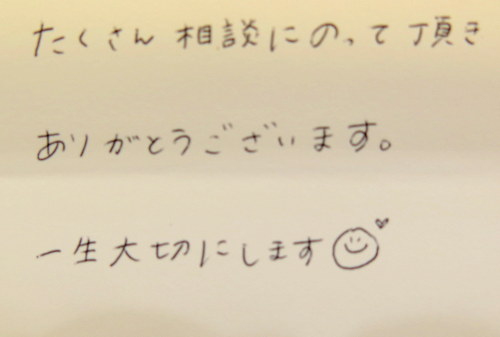 たくさん 相談にのって頂き
ありがとうございます。
一生大切にします